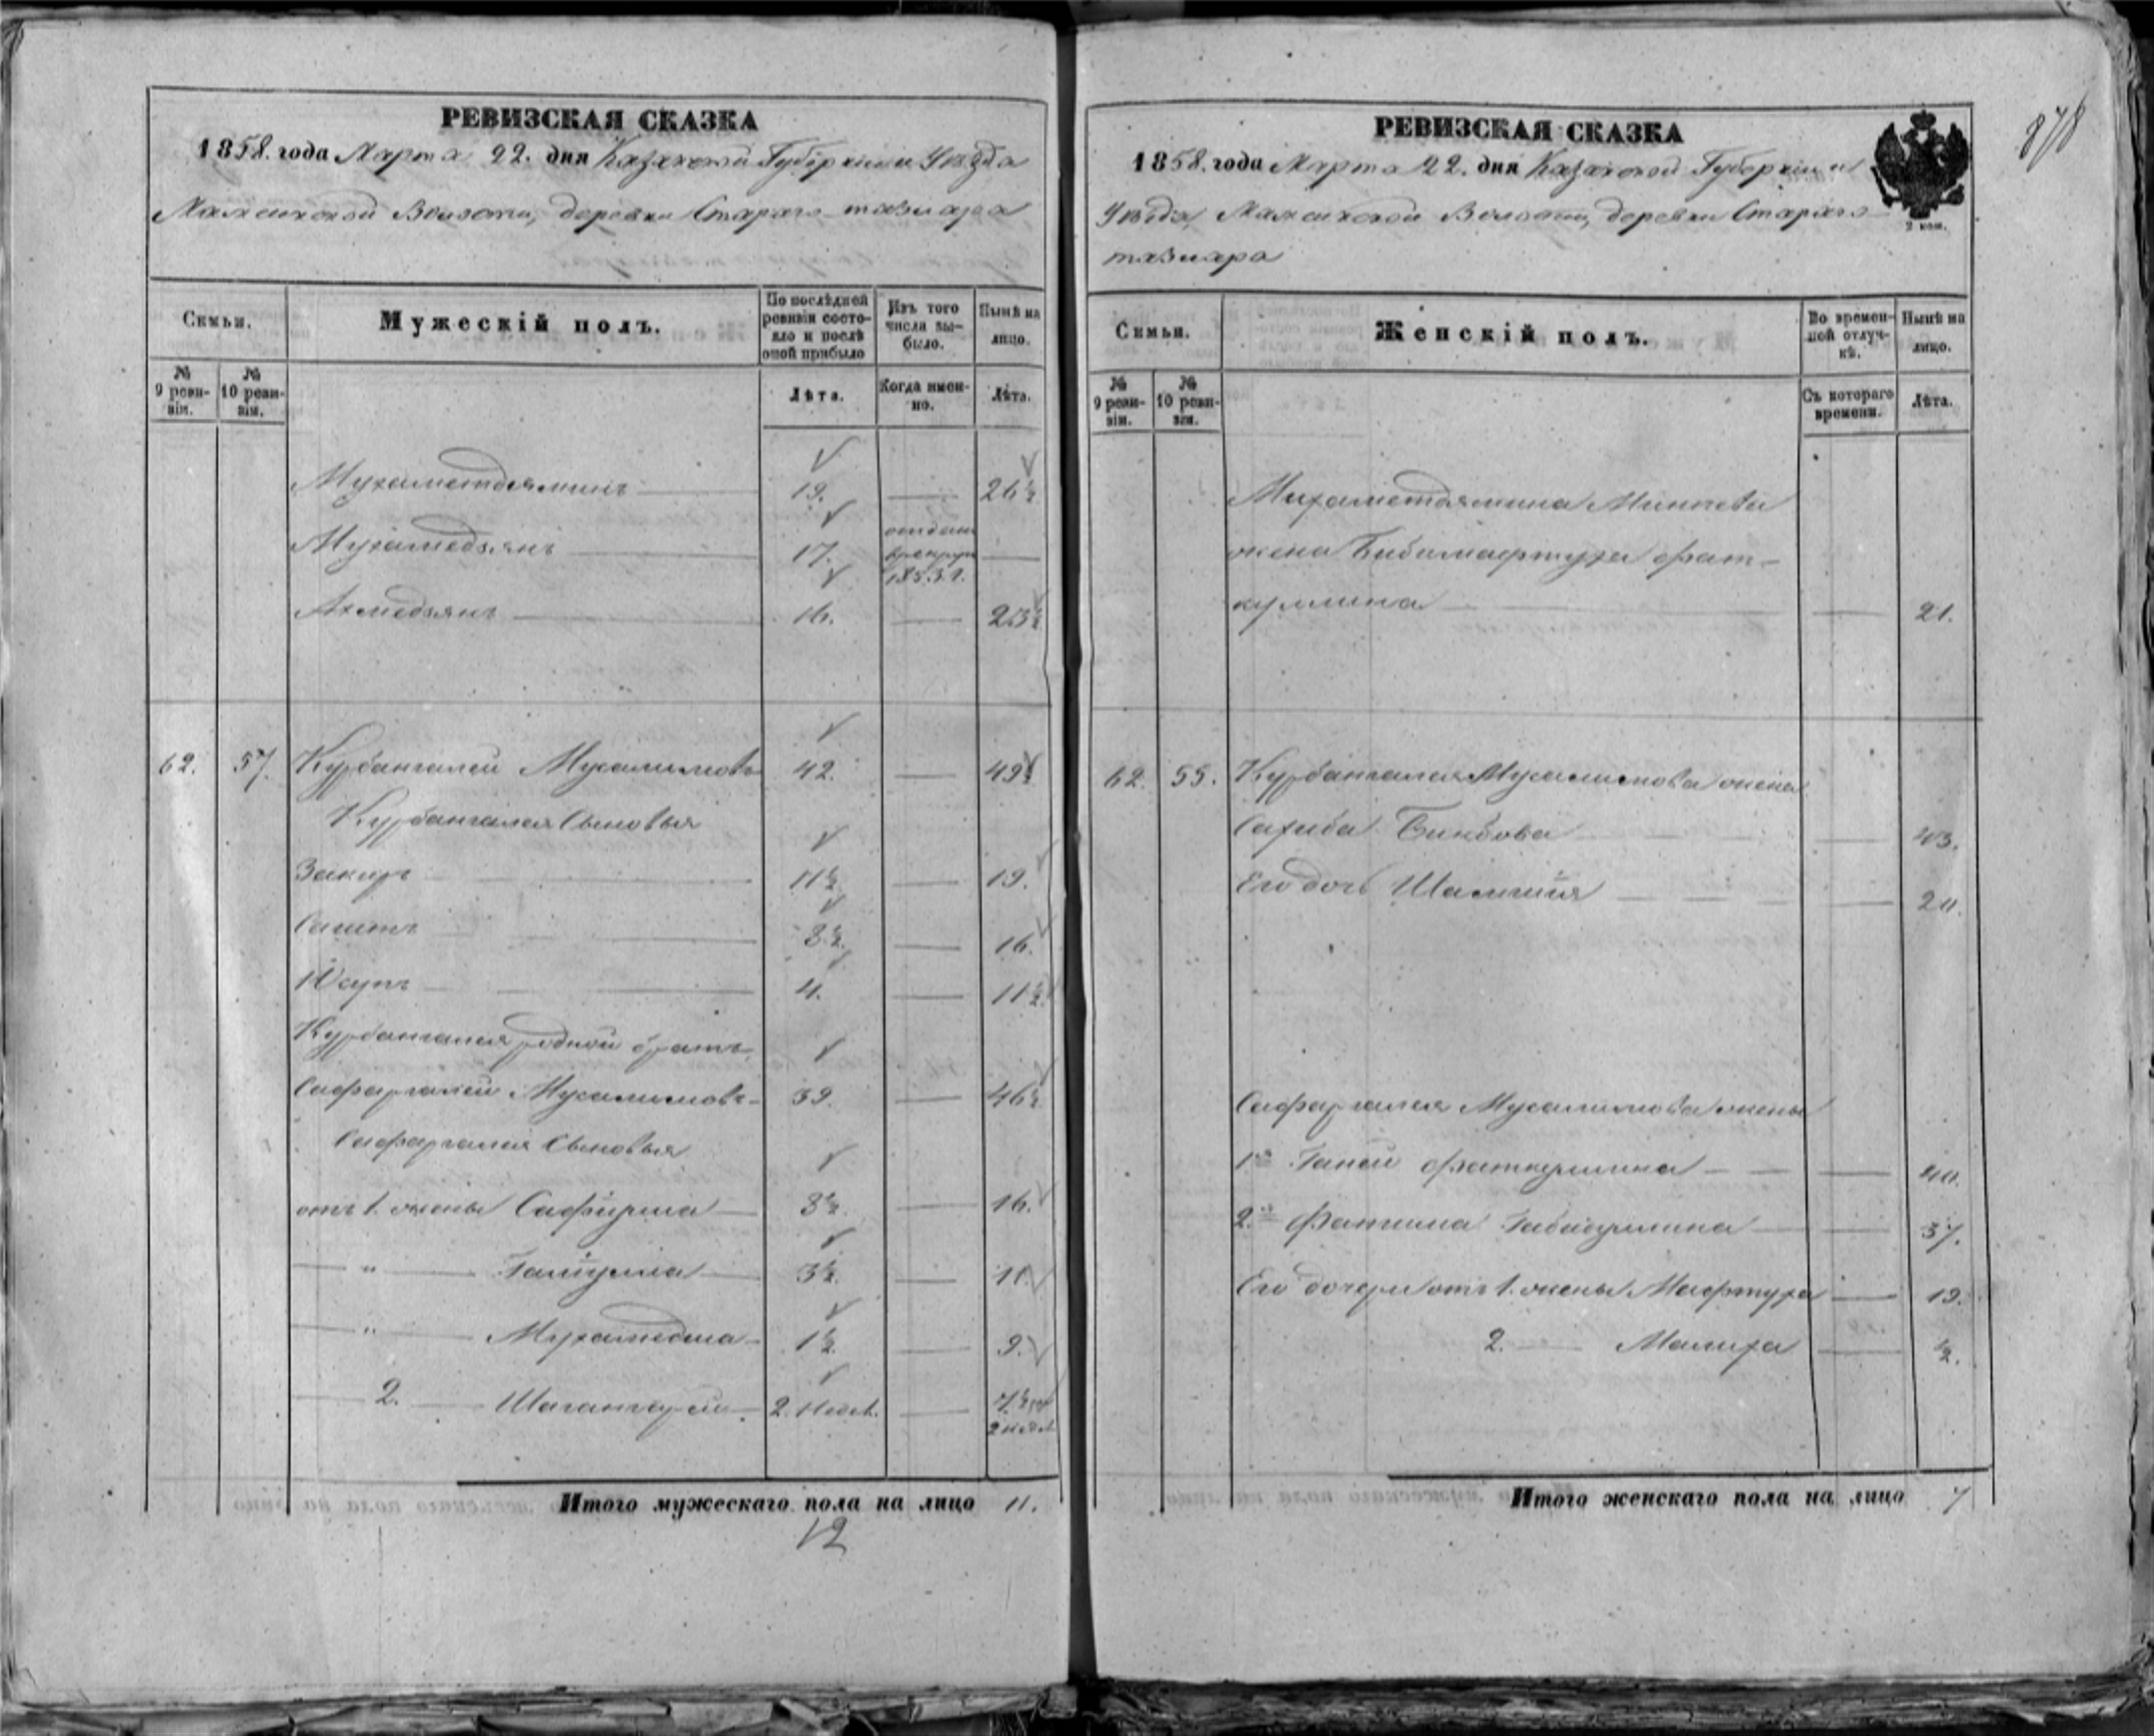 РЕВИЗСКАЯ СКАЗКА
1858. года Марта 22. дня Казанской Губернiи и Уѣзда
Волости, деревни Стараго
Семьи.
Мужескiй полъ.
По послѣдней ревизiи состояло и послѣ оной прибыло
Изъ того числа выбыло.
Нынѣ на лицо.
№ 9 ревизiи.
№ 10 ревизiи.
Лѣта.
Когда именно.
Лѣта.
19. 26½
Мухамедзянъ 17. отданъ в рекруты 1853 г.
Ахмедзянъ 16. 23½
62. 57. Курбангалей Мусалимовъ 42. 49½
Курбангалея Сыновья
Закиръ 11½ 19.
Сагитъ 8½. 16.
Юсупъ 4. 11½.
Курбангалея родной братъ
Сафаргалей Мусалимовъ 39. 46½
Сафаргалея Сыновья
отъ 1. жены 8½. 16.
" 3½. 11.
" Мухаметша 1½. 9.
2. Шагангарей 2. недел. 7½ 2 недел.
Итого мужескаго пола на лицо 11.
12
878
РЕВИЗСКАЯ СКАЗКА
1858. года Марта 22. дня Казанской Губернiи и
Уѣзда, Волости, деревни Стараго
2 коп.
Семьи.
Женскiй полъ.
Во временной отлучкѣ.
Нынѣ на лицо.
№ 9 ревизiи.
№ 10 ревизiи.
Съ котораго времени.
Лѣта.
жена Бибимафтуха Фат-
куллина 21.
62. 55. Курбангалея Мусалимова жена
Сахиба 43.
Его дочь 20.
Сафаргалея Мусалимова жены
1я Фаткуллина 40.
2я Фатима 37.
Его дочери отъ 1. жены Мафтуха 19.
2. Малиха ½.
Итого женскаго пола на лицо 7